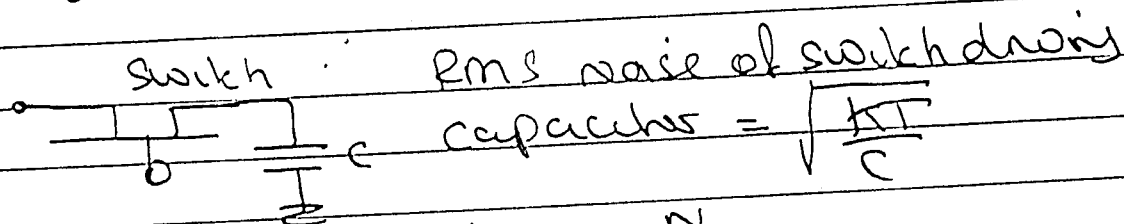 Switch : RMS noise of switch driving
C capacitor = √(KT/C)
N